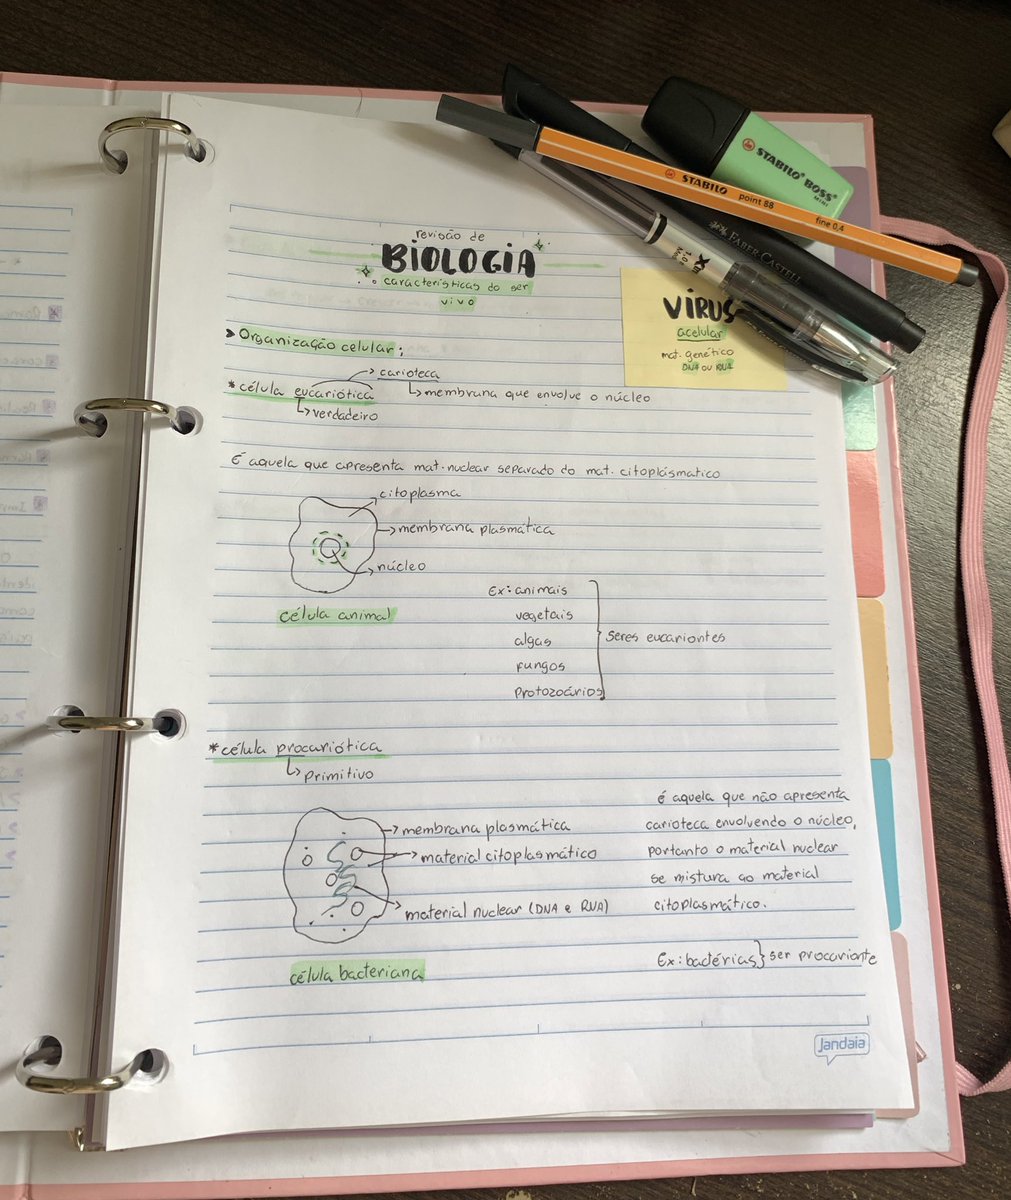 revisão de
BIOLOGIA
características do ser
vivo
VÍRUS
acelular
mat. genético
DNA ou RNA
STABILO BOSS
MINI
STABILO point 88 fine 0,4
FABER-CASTELL
> Organização celular:
carioteca
* célula eucariótica
membrana que envolve o núcleo
verdadeiro
É aquela que apresenta mat. nuclear separado do mat. citoplásmatico
citoplasma
membrana plasmática
núcleo
célula animal
Ex: animais
vegetais
algas
fungos
protozoários
seres eucariontes
* célula procariótica
primitivo
membrana plasmática
material citoplasmático
material nuclear (DNA e RNA)
célula bacteriana
é aquela que não apresenta
carioteca envolvendo o núcleo,
portanto o material nuclear
se mistura ao material
citoplasmático.
Ex: bactérias} ser procarionte
Jandaia